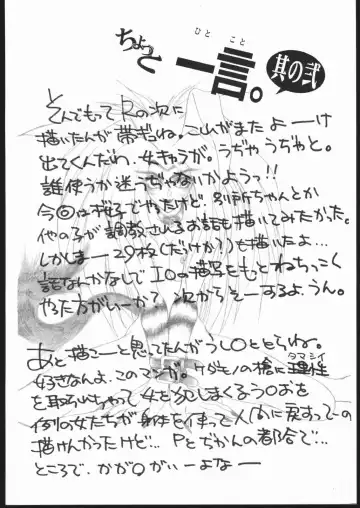 ちょっと
一言。
ひと こと
其の弐
そんでもってRの次に
描いたんが帯ギュね。これがまたよーけ
出てくんだわ、女キャラが。うぢゃうぢゃと。
誰使うか迷うぢゃないかようっ!!
今回は桜子でやったけど、別所ちゃんとか
他の子が調教されるお話も描いてみたかった。
しかしまー29枚(だけか?)も描いたよ…
話なんかなしで IOの描写をもとねちっこく
やった方がいーか? 次からそーするよ、うん。
あと描こーと思ってたんがうしOととらね。
好きなんよ、このマンガ。ケダモノの槍に理性
タマシイ
を取られちゃって女を犯しまくるうOおを
例の女たちが身体を使って人間に戻すってーの
描けんかったけど… Pとぢかんの都合で…
ところで、かがOがいーよなー